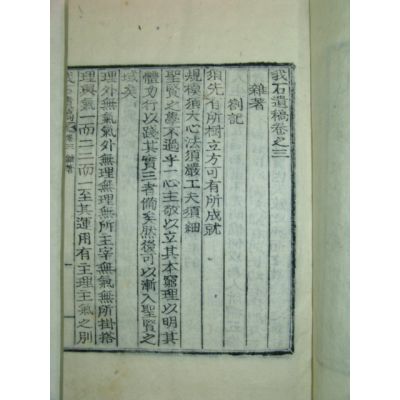 我石遺稿卷之三
雜著
劄記
須先有所樹立方可有所成就
規模須大心法須嚴工夫須細
聖賢之學不過乎一心主敬以立其本窮理以明其
體力行以踐其實三者備矣然後可以漸入聖賢之
域矣
理外無氣氣外無理無理無所主宰無氣無所掛搭
理與氣一而二二而一至其運用有主理主氣之別
卷三 雜著